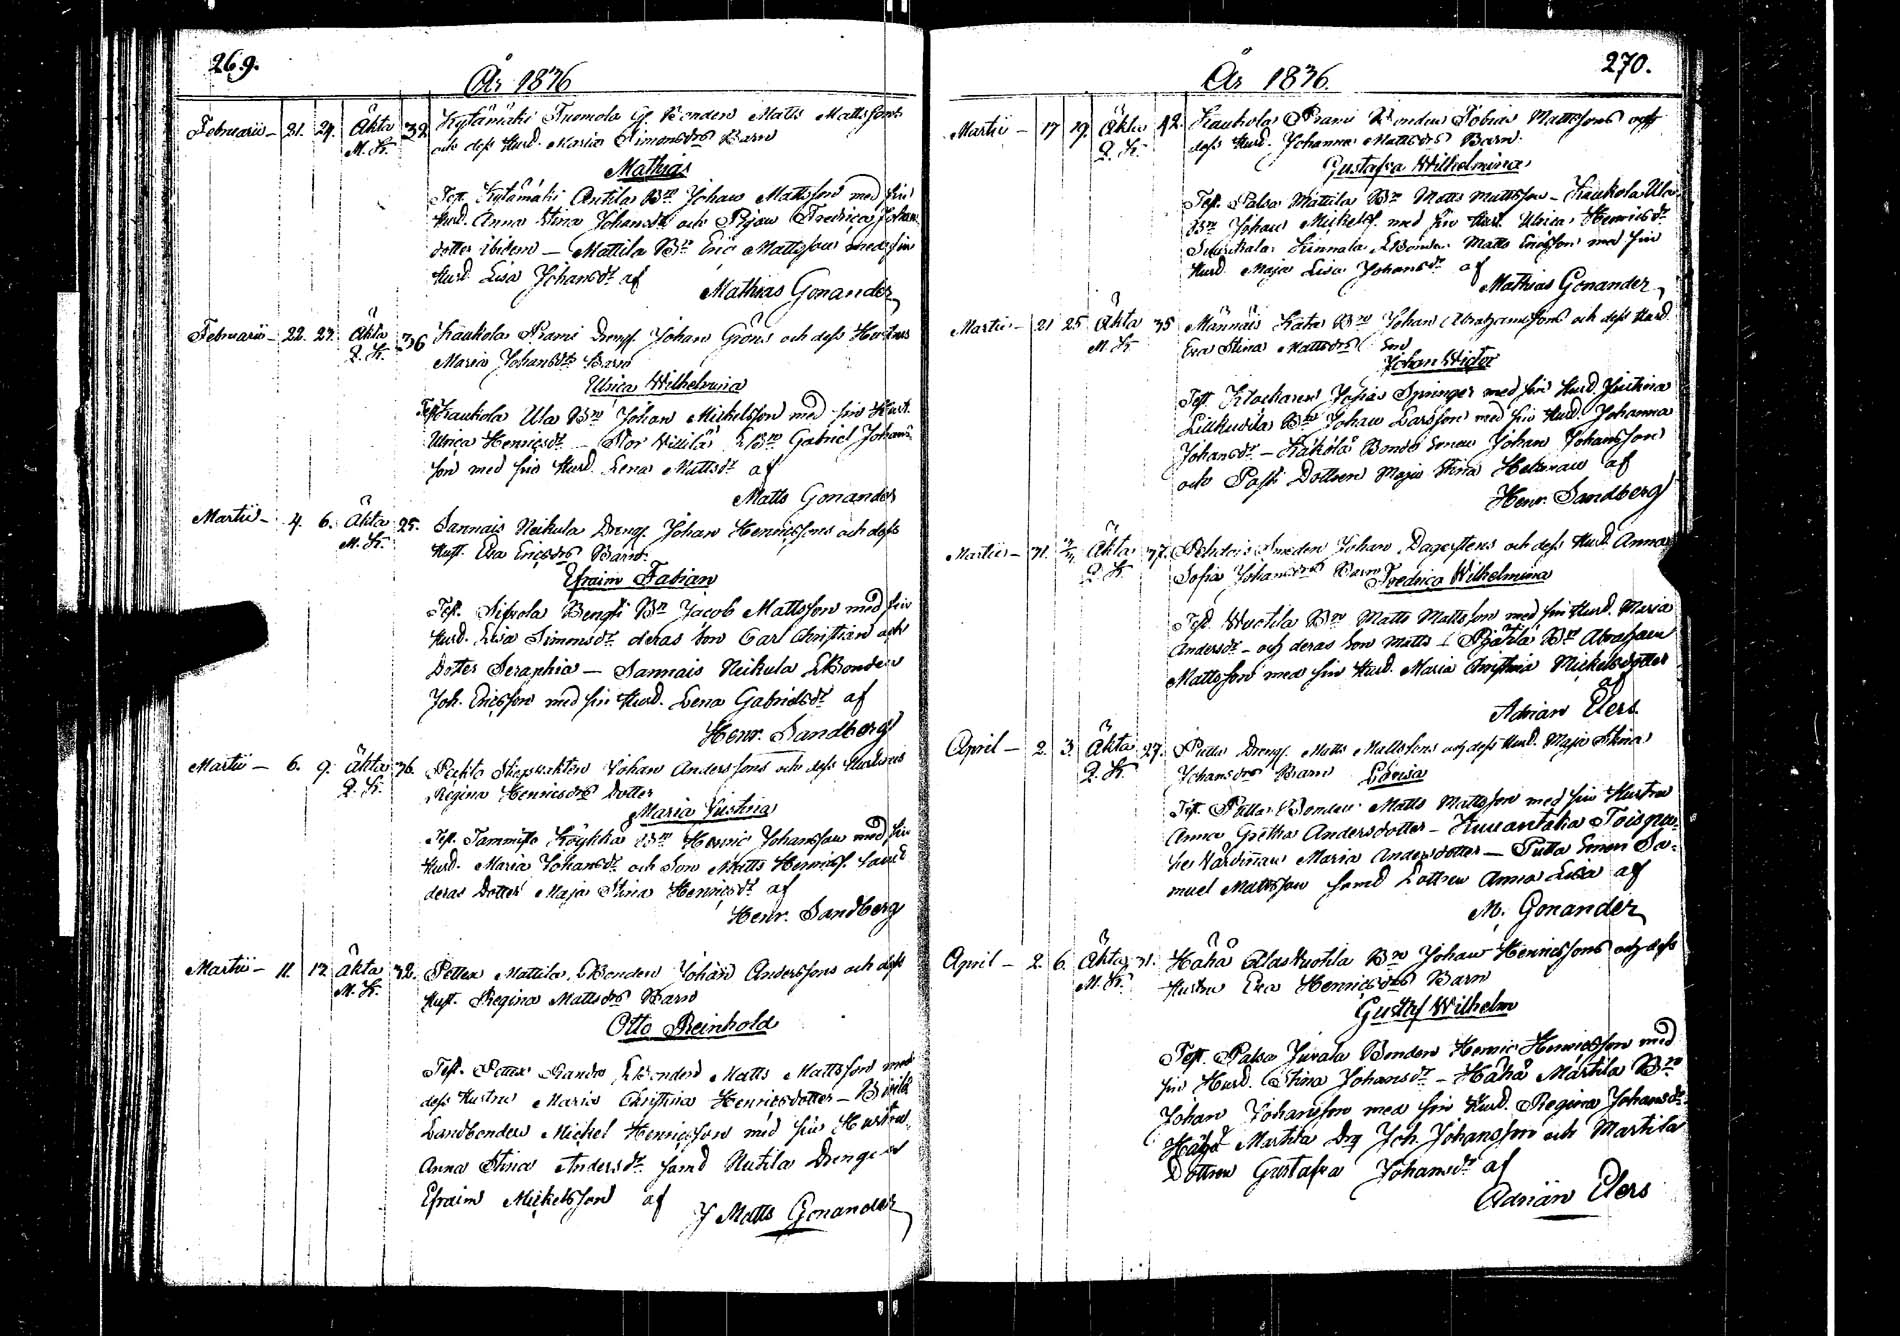 269.
År 1836
Februarii – 21. 24. Äkta M. K. 32. Kytämäki Tuomola G. Bonden Matts Mattssons
och dess Hust. Maria Simonsdrs Barn
Mathias
Test. Kytämäki Antila Bn Johan Mattsson med sin
Hust. Anna Stina Johansdr och Pigan Fredrica Johans
dotter ibidem – Mattila Bn Eric Mattsson med sin
Hust. Lisa Johansdr af
Mathias Gonander
Februarii – 22. 27. Äkta Q. K. 36 Kaukola Prami Dreng. Johan Gröns och dess Hustrus
Maria Johansdrs Barn
Ulrica Wilhelmina
Test. Kaukola Ula Bn Johan Michelsson med sin Hust.
Ulrica Henricsdr – Stor Willilä LBn Gabriel Johans
son med sin Hust. Lena Mattsdr af
Matts Gonander
Martii – 4. 6. Äkta M. K. 25. Sannais Neikula Dreng. Johan Henricssons och dess
Hust. Eva Ericsdrs Barn
Efraim Fabian
Test. Sippola Bengti Bn Jacob Mattsson med sin
Hust. Lisa Simonsdr deras son Carl Christian och
Dotter Seraphia – Sannais Nikula LBonden
Joh. Ericsson med sin Hust. Lena Gabrielsdr af
Henr. Sandberg
Martii – 6. 9. Äkta Q. K. 36. Johan Anderssons och dess Hustrus
Regina Henricsdrs Dotter
Maria Justina
Test. Tammisto Köylikkä Bn Henric Johansson med sin
Hust. Maria Johansdr och Son Matts Henricss. samt
deras Dotter Maja Stina Henricsdr af
Henr. Sandberg
Martii – 11. 12 Äkta M. K. 32. Pettex Mattila LBonden Johan Anderssons och dess
Hust. Regina Mattsdrs Barn
Otto Reinhold
Test. Pettex LBonden Matts Mattsson med
dess Hustru Maria Christina Henricsdotter –
Landbonden Michel Henricsson med sin Hustru
Anna Stina Andersdr samt Nutila Drengen
Efraim Mickelsson af
Matts Gonander
270.
År 1836.
Martii – 17 19. Äkta Q. K. 42. Kaukola Prami Bonden Tobias Mattssons och
dess Hust. Johanna Mattsdrs Barn
Gustafva Wilhelmina
Test. Palsa Mattila Bn Matts Mattsson – Kaukola Ula
Bn Johan Mickelss. med sin Hust. Ulrica Henricsdr
LBonden Matts Ericsson med sin
Hust. Maja Lisa Johansdr af
Mathias Gonander
Martii – 21 25 Äkta M. K 35 Männäis Kata Bn Johan Abrahamssons och dess Hust.
Eva Stina Mattsdrs Son
Johan Victor
Test. Klockaren Josua Springer med sin Hust. Justina
Liukuila Bn Johan Larsson med sin Hust. Johanna
Johansdr – Käkölä Bonde Sonen Johan Johansson
och Passi Dottren Maja Stina Hekman af
Henr. Sandberg
Martii – 31. Äkta Q. K. 37. Smeden Johan Dagerstens och dess Hust. Anna
Sofia Johansdrs Barn Fredrica Wilhelmina
Test. Wuotila Bn Matts Mattsson med sin Hust. Maria
Andersdr – och deras son Matts – Pjätilä Bn Abraham
Mattsson med sin Hust. Maria Christina Mickelsdotter
af
Adrian Elers.
April – 2. 3. Äkta Q. K. 27. Dreng. Matts Mattssons och dess Hust. Maja Stina
Johansdrs Barn Lovisa
Test. Bonden Matts Mattsson med sin Hustru
Anna Gretha Andersdotter –
Maria Andersdotter – Sonen Sa-
muel Mattsson samt Dottren Anna Lisa af
M. Gonander
April – 2. 6. Äkta M. K. 31. Håhå Alastuotila Bn Johan Henricssons och dess
Hustru Eva Henricsdrs Barn
Gustaf Wilhelm
Test. Palsa Juvala Bonden Henric Henricsson med
sin Hust. Stina Johansdr – Håhå Märtila Bn
Johan Johansson med sin Hust. Regina Johansdr
Håhå Martila Drg Joh. Johansson och Martila
Dottren Gustafva Johansdr af
Adrian Elers